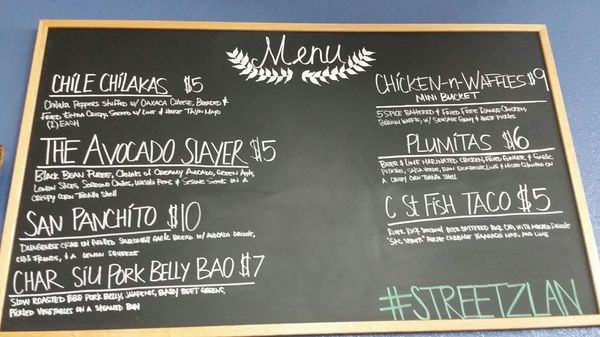 Menu
CHILE CHILAKAS $5
Chilaka Peppers Stuffed w/ Oaxaca Cheese, Breaded &
Fried Extra Crispy, Served w/ Lime & House Mayo
(2) EACH
THE AVOCADO SLAYER $5
Black Bean Puree, Chunks of Creamy Avocado, Green Apple,
Lemon Slices, Serrano Chiles, & Sesame on a
Crispy Corn Tortilla Shell
SAN PANCHITO $10
Dungeness Crab on Grilled Sourdough Garlic Bread w/ Avocado
& a Lemon Squeeze
CHAR SIU PORK BELLY BAO $7
Slow Roasted BBQ Pork Belly, Jalapenos, Baby Beet Greens,
Pickled Vegetables on a Steamed Bun
CHICKEN-n-WAFFLES $9
MINI BUCKET
5 Spice Battered & Fried Free Range Chicken,
Belgian Waffle, w/ & House Pickles
PLUMITAS $6
Beer & Lime Marinated Chicken, Fried Ginger & Garlic
Potatoes, Salsa Verde, Lime & Micro Cilantro on
a Crispy Corn Tortilla Shell
C St FISH TACO $5
Beer Battered Cod, with
Cabbage and Lime
#STREETZLAN